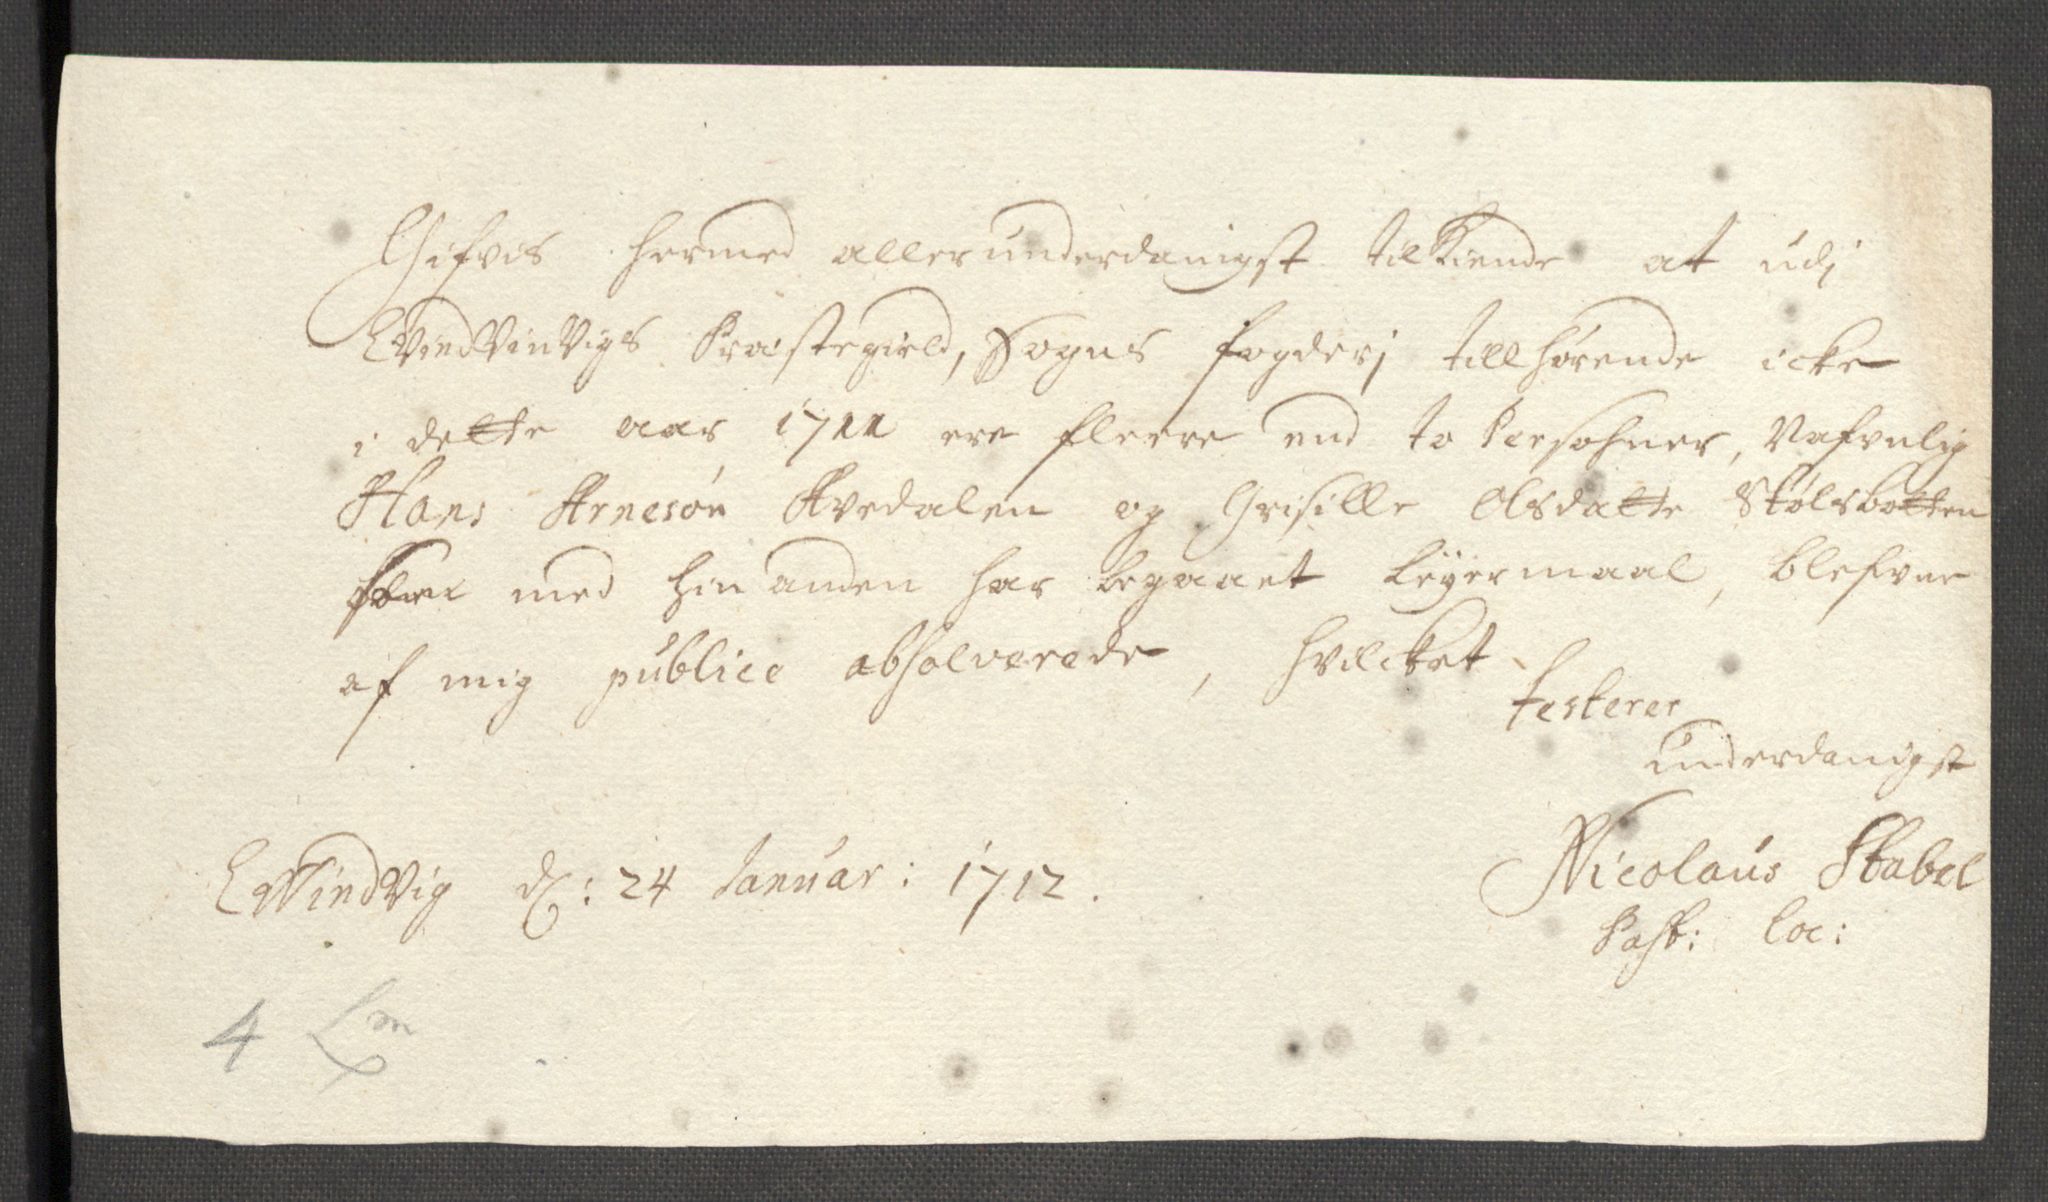 Gifvis hermed allerunderdanigst tilkiende at udj
EvindVinVigs Præstegield, Sogns fogderj tillhørende icke
i dette aar 1711 ere fleere end to Persohner, Nafvnlig
Hans Arnesøn Avedalen og Grisille Olsdatte Stølsbotten
med hin anden har begaaet Leyermaal, blefvne
af mig publice absolverede, hvilcket
testerer
underdanigst
Evindvig d: 24 Januar: 1712.
Nicolaus Stabel
Past: loc:
4 Lm